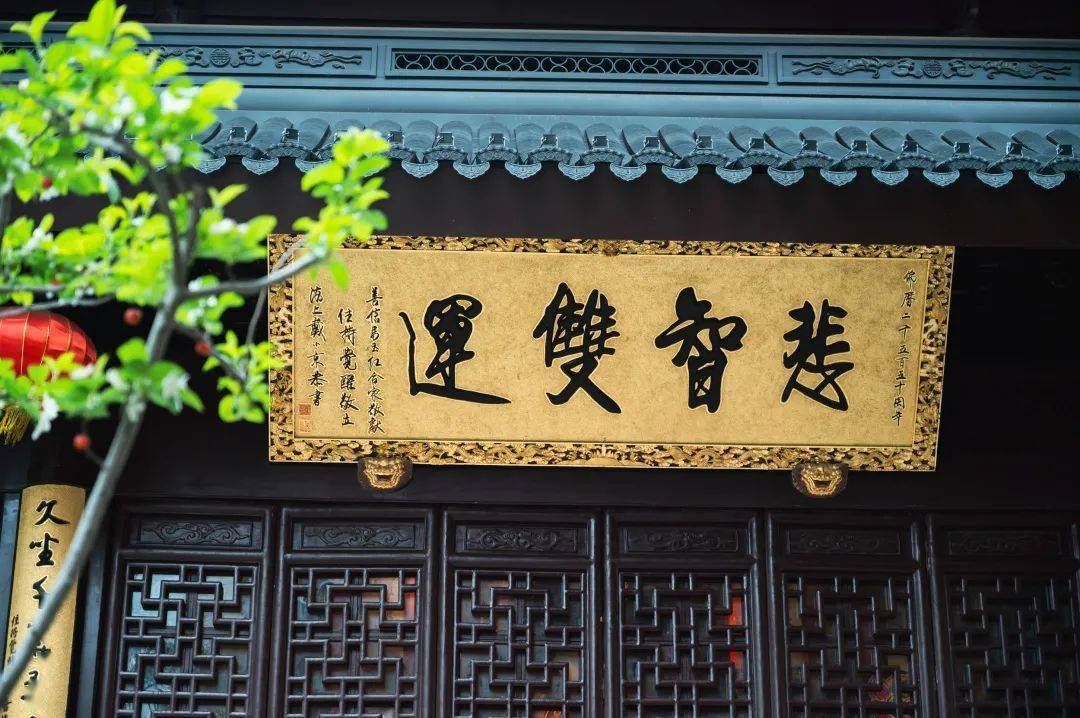 佛曆二千五百五十周年
悲智雙運
善信合家敬獻
住持覺醒敬立
滬上戴小京恭書
久坐千
住持